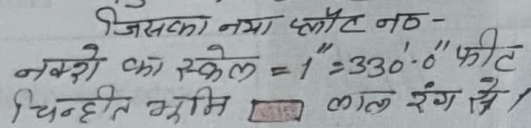 जिसका नया प्लौट नठ -
नक्शे का स्केल = 1" = 330'-0" फीट
चिन्हीत भूमि लाल रंग से।